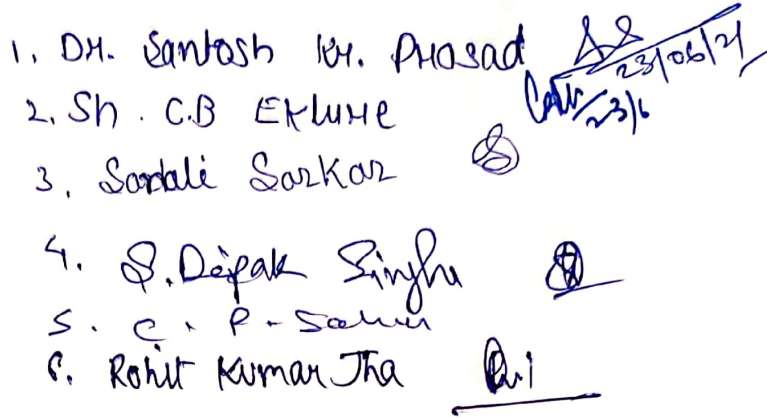 1. DR. Santosh Kr. Prasad 23/06/21
2. Sh. C.B Ekluxe 23/6
3. Sonali Sarkar
4. S. Deepak Singha
5. C. P. Sahu
6. Rohit Kumar Jha